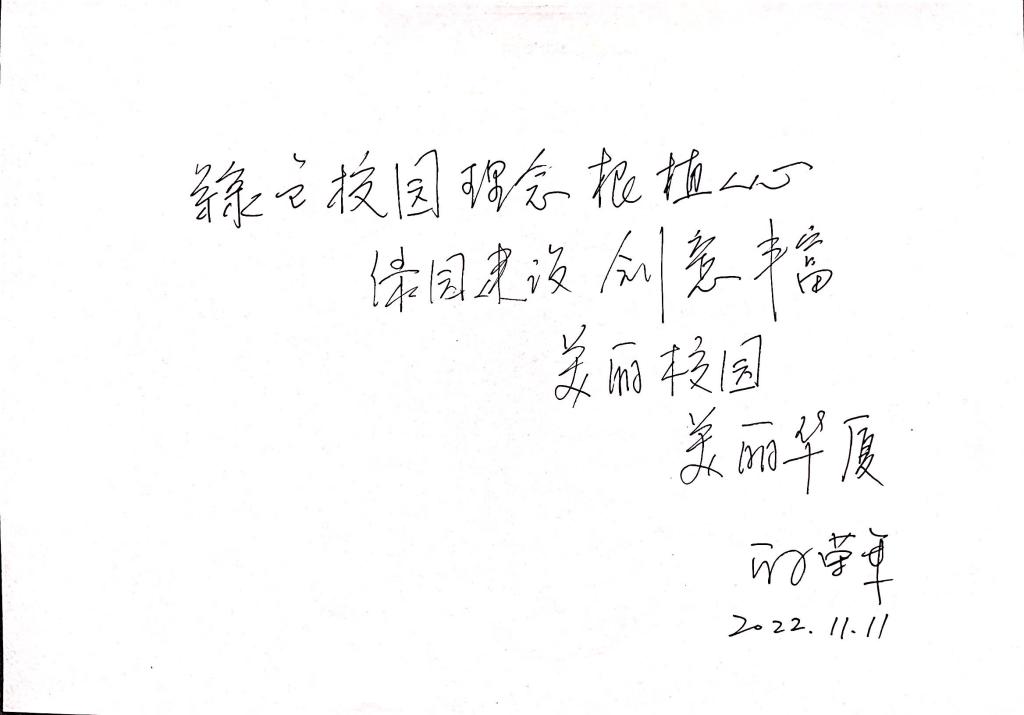 绿色校园理念根植人心
保园建设创意丰富
美丽校园
美丽华厦
荣军
2022.11.11